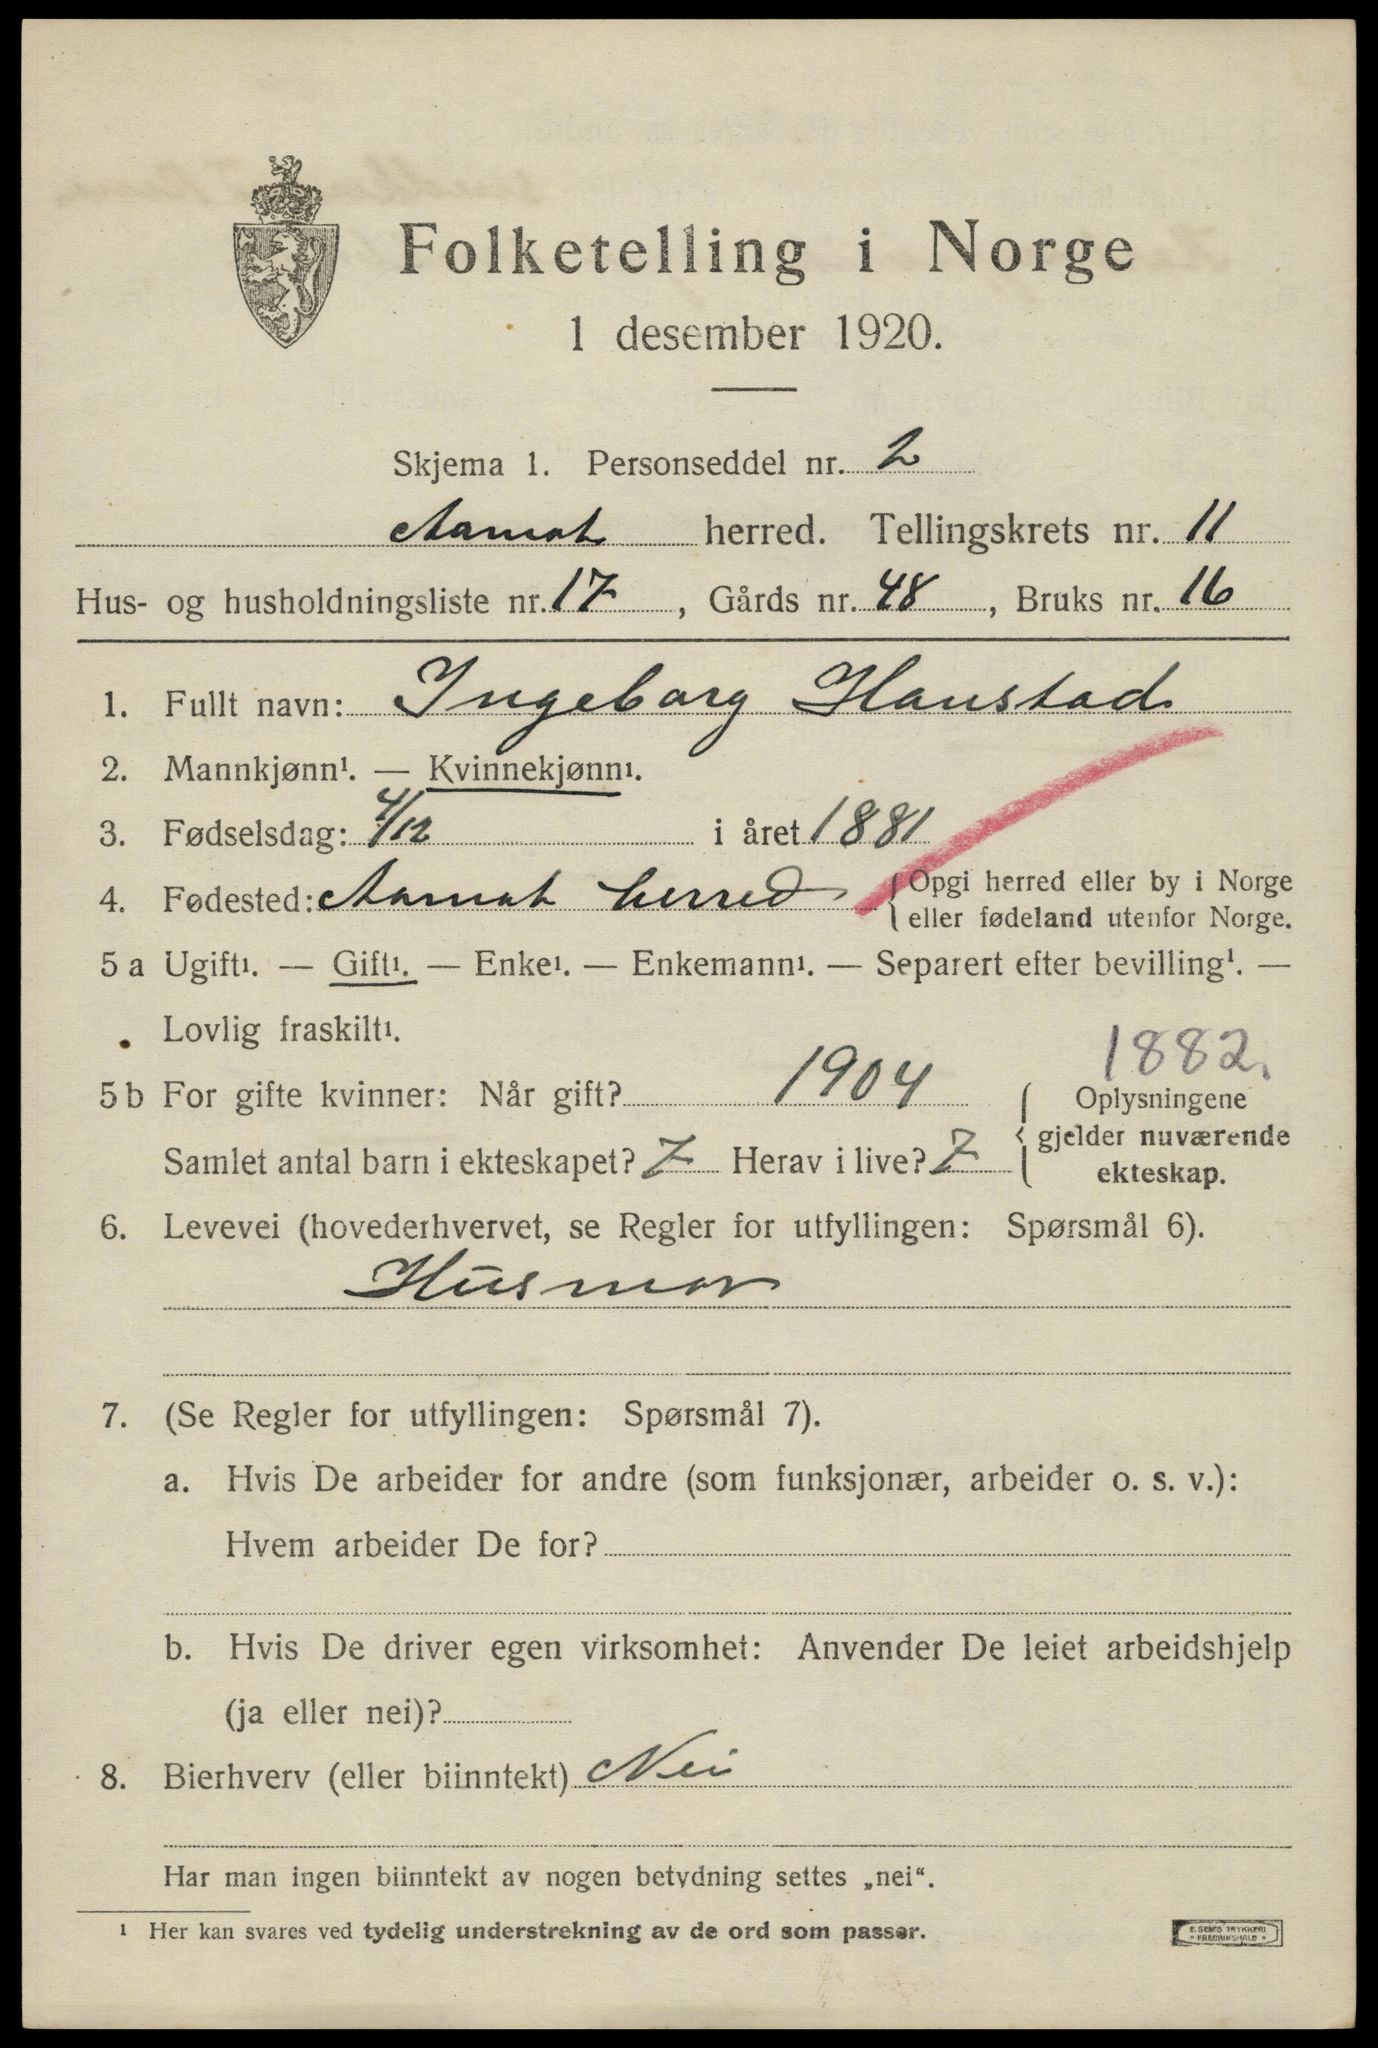 Folketelling i Norge
1 desember 1920.
Skjema 1. Personseddel nr. 2
Aamot herred. Tellingskrets nr. 11
Hus- og husholdningsliste nr. 17, Gårds nr. 48, Bruks nr. 16
1. Fullt navn: Ingeborg Hanstad
2. Mannkjønn¹. — Kvinnekjønn¹.
3. Fødselsdag: 4/12 i året 1881
4. Fødested: Aamot herred {Opgi herred eller by i Norge
eller fødeland utenfor Norge.
5 a Ugift¹. — Gift¹. — Enke¹. — Enkemann¹. — Separert efter bevilling¹. —
Lovlig fraskilt¹.
1882.
5 b For gifte kvinner: Når gift? 1904 {Oplysningene
gjelder nuværende
Samlet antal barn i ekteskapet? 7 Herav i live? 7
ekteskap.
6. Levevei (hovederhvervet, se Regler for utfyllingen: Spørsmål 6).
Husmor
7. (Se Regler for utfyllingen: Spørsmål 7).
a. Hvis De arbeider for andre (som funksjonær, arbeider o. s. v.):
Hvem arbeider De for?
b. Hvis De driver egen virksomhet: Anvender De leiet arbeidshjelp
(ja eller nei)?
8. Bierhverv (eller biinntekt) Nei
Har man ingen biinntekt av nogen betydning settes „nei“.
¹ Her kan svares ved tydelig understrekning av de ord som passer.
E. SEM'S TRYKKERI
* FREDRIKSHALD *